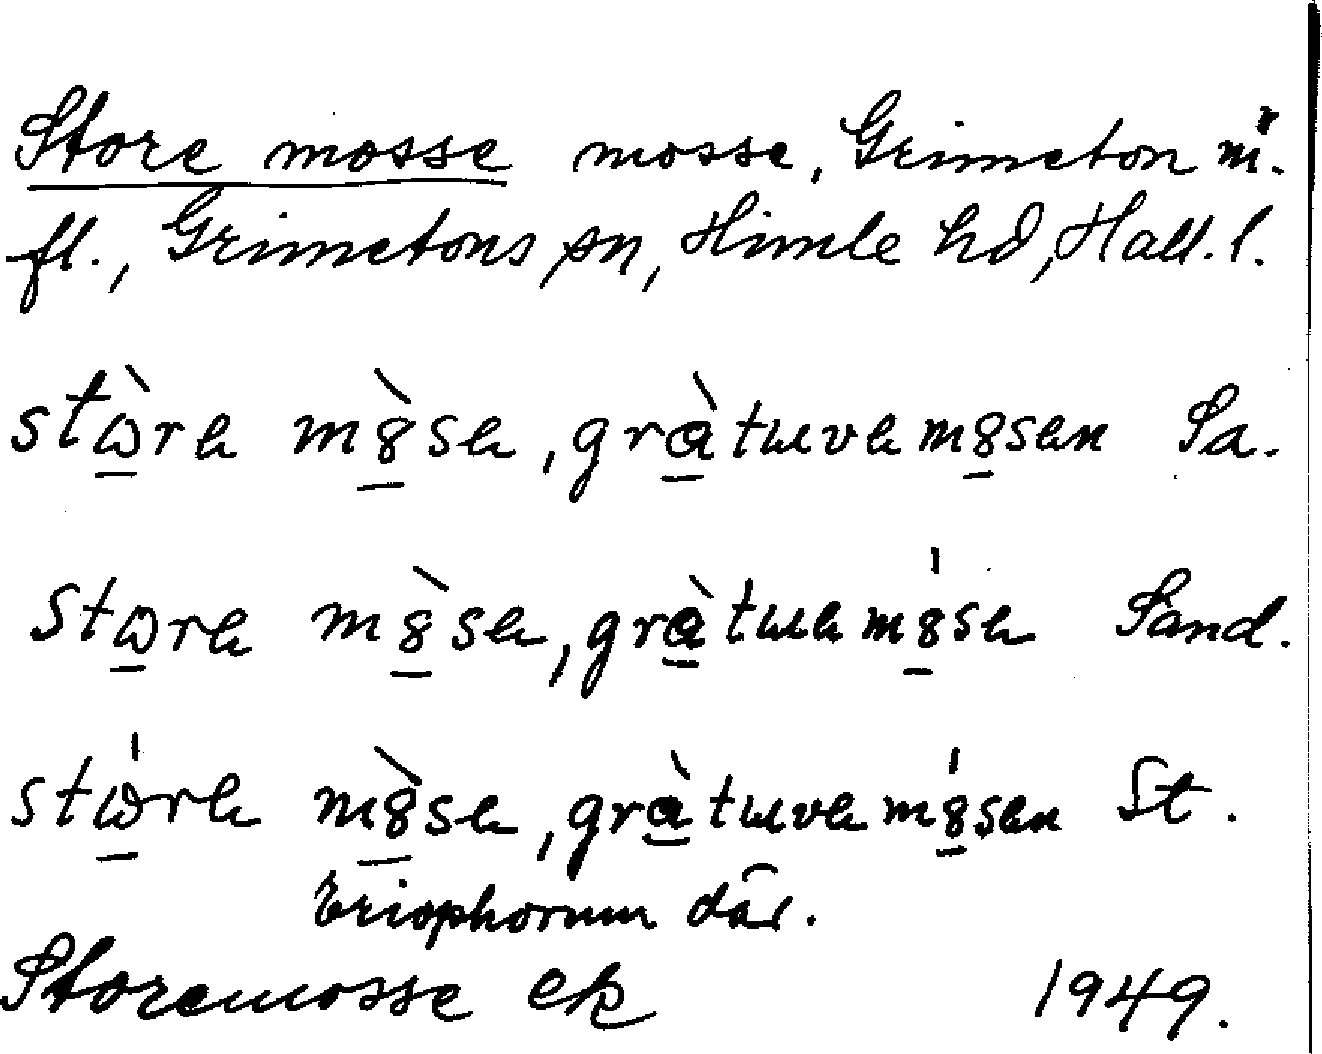 Store mosse mosse, Grimeton m.
fl., Grimetons sn, Himle hd, Hall. l.
stὼ̱ra m8̱̀sa, grà̱tuvam8̱san Sa.
stω̱ra m8̱̀sa, grà̱tuam8̱́sa Sand.
stώ̱ra m8̱̀sa, grà̱tuvam8̱́san St.
Eriophorum där.
Storemosse ek 1949.